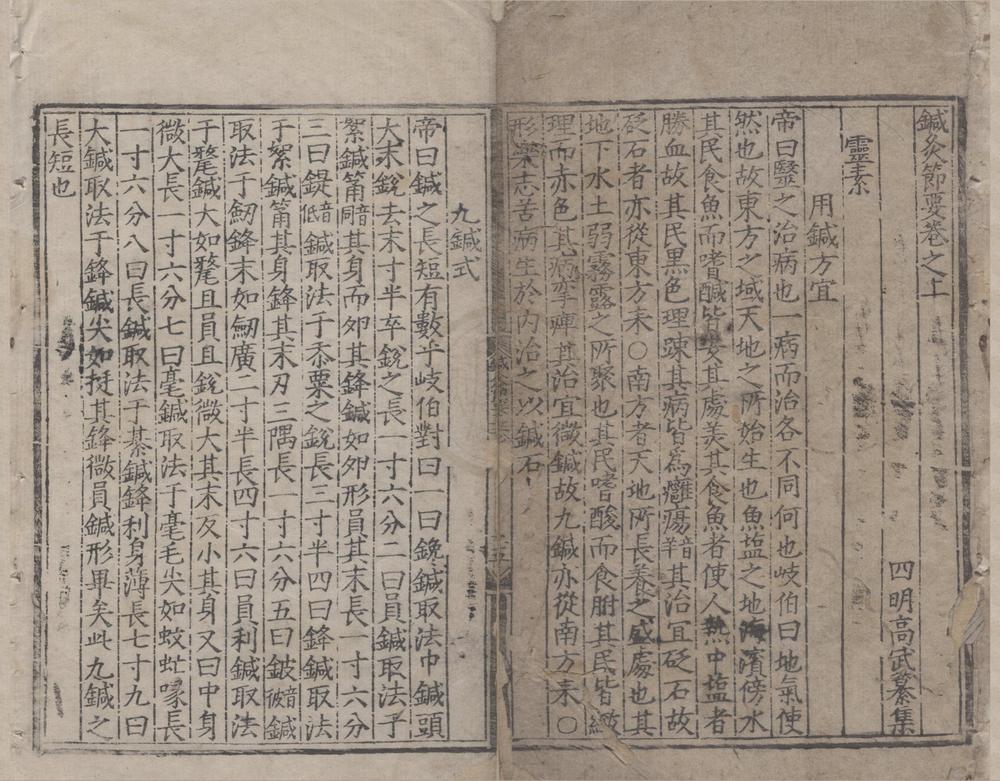 鍼灸節要卷之上
四明高武纂集
靈素
用鍼方宜
帝曰毉之治病也一病而治各不同何也岐伯曰地氣使
然也故東方之域天地之所始生也魚塩之地海濱傍水
其民食魚而嗜鹹皆安其處美其食魚者使人熱中塩者
勝血故其民黒色理踈其病皆為癰瘍音羊其治冝砭石故
砭石者亦從東方来○南方者天地所長養之盛處也其
地下水土弱霧露之所聚也其民嗜酸而食胕其民皆緻
理而赤色其病挛痺其治宜微鍼故九鍼亦從南方来○
形樂志苦病生於内治之以鍼石
九鍼式
帝曰鍼之長短有數乎岐伯對曰一曰鑱鍼取法巾鍼頭
大末銳去末寸半卒銳之長一寸六分二曰員鍼取法于
絮鍼筩音同其身而夘其鋒鍼如夘形員其末長一寸六分
三曰鍉音低鍼取法于黍粟之銳長三寸半四曰鋒鍼取法
于絮鍼筩其身鋒其末刃三隅長一寸六分五曰鈹音被鍼
取法于劒鋒末如劒廣二寸半長四寸六曰員利鍼取法
于氂鍼大如氂且員且銳微大其末反小其身又曰中身
微大長一寸六分七曰毫鍼取法于毫毛尖如蚊虻喙長
一寸六分八曰長鍼取法于綦鍼鋒利身薄長七寸九曰
大鍼取法于鋒鍼尖如挺其鋒微員鍼形畢矣此九鍼之
長短也